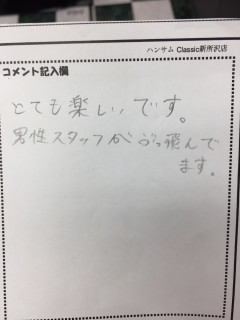 ハンサム Classic新所沢店
コメント記入欄
とても楽しいです。
男性スタッフがぶっ飛んで
ます。